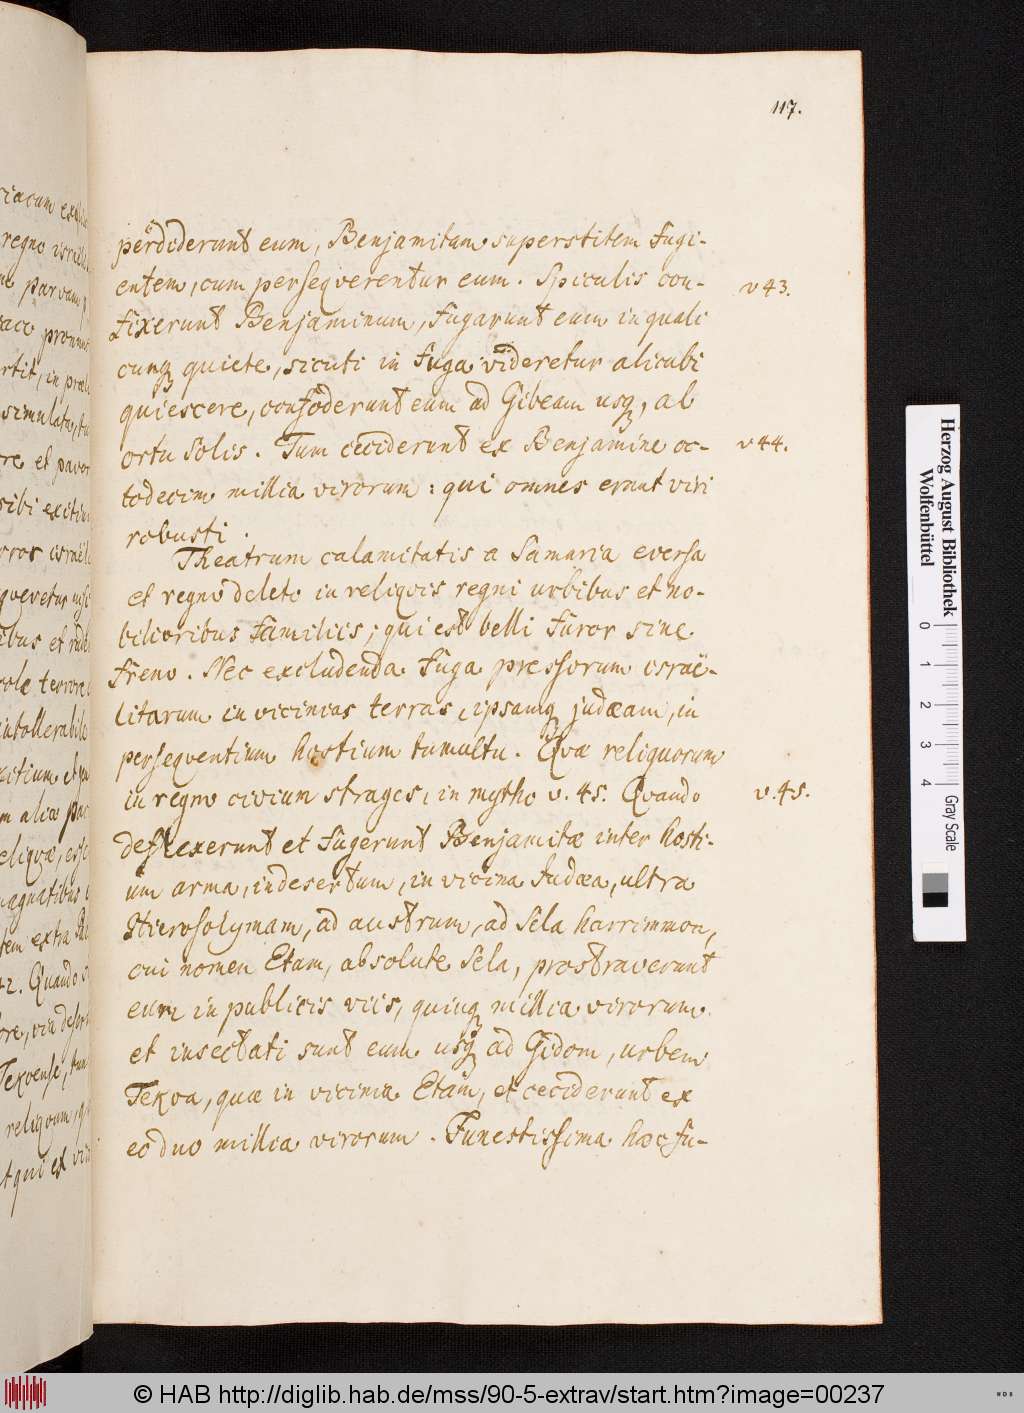 117.
perdiderunt eum, Benjamitam superstitem fugi-
entem, cum perseqverentur eum. Spiculis con-
v 43.
fixerunt Benjaminum, fugarunt eum in quali
cunq; quiete, sicuti in fuga videretur alicubi
quiescere, confoderunt eum ad Gibeam usq;, ab
ortu Solis. Tum ceciderunt ex Benjamine oc-
v 44.
todecim millia virorum: qui omnes erant viri
robusti.
Theatrum calamitatis a Samaria eversa
et regno deleto in reliqvis regni urbibus et no-
bilioribus familiis; qui est belli furor sine
freno. Nec excludenda fuga pressorum israë-
litarum in vicinias terras, ipsamq; judæam, in
perseqventium hostium tumultu. Qvæ reliquorum
in regno civium strages, in mytho v. 45. Qvando
v. 45.
deflexerunt et fugerunt Benjamitæ inter hosti-
um arma, in desertum, in vicina Judæa, ultra
Hierosolymam, ad austrum, ad Sela harrimmon,
cui nomen Etam, absolute Sela, prostraverunt
eum in publicis viis, quinq; millia virorum
et insectati sunt eum usq; ad Gidom, urbem
Tekoa, quæ in vicinia Etam, et ceciderunt ex
eo duo millia virorum. Funestissima hæc fu-
riacum
regno israël
parvam,
simulata,
et pavor
sibi exitium
et
terrore
intollerabile
exitium et
alia
reliqvæ, esse
magnatibus
extra
42. Quando
via
Tekoense,
reliqvum,
qui ex
Herzog August Bibliothek
Wolfenbüttel
0 1 2 3 4
Gray Scale
© HAB http://diglib.hab.de/mss/90-5-extrav/start.htm?image=00237